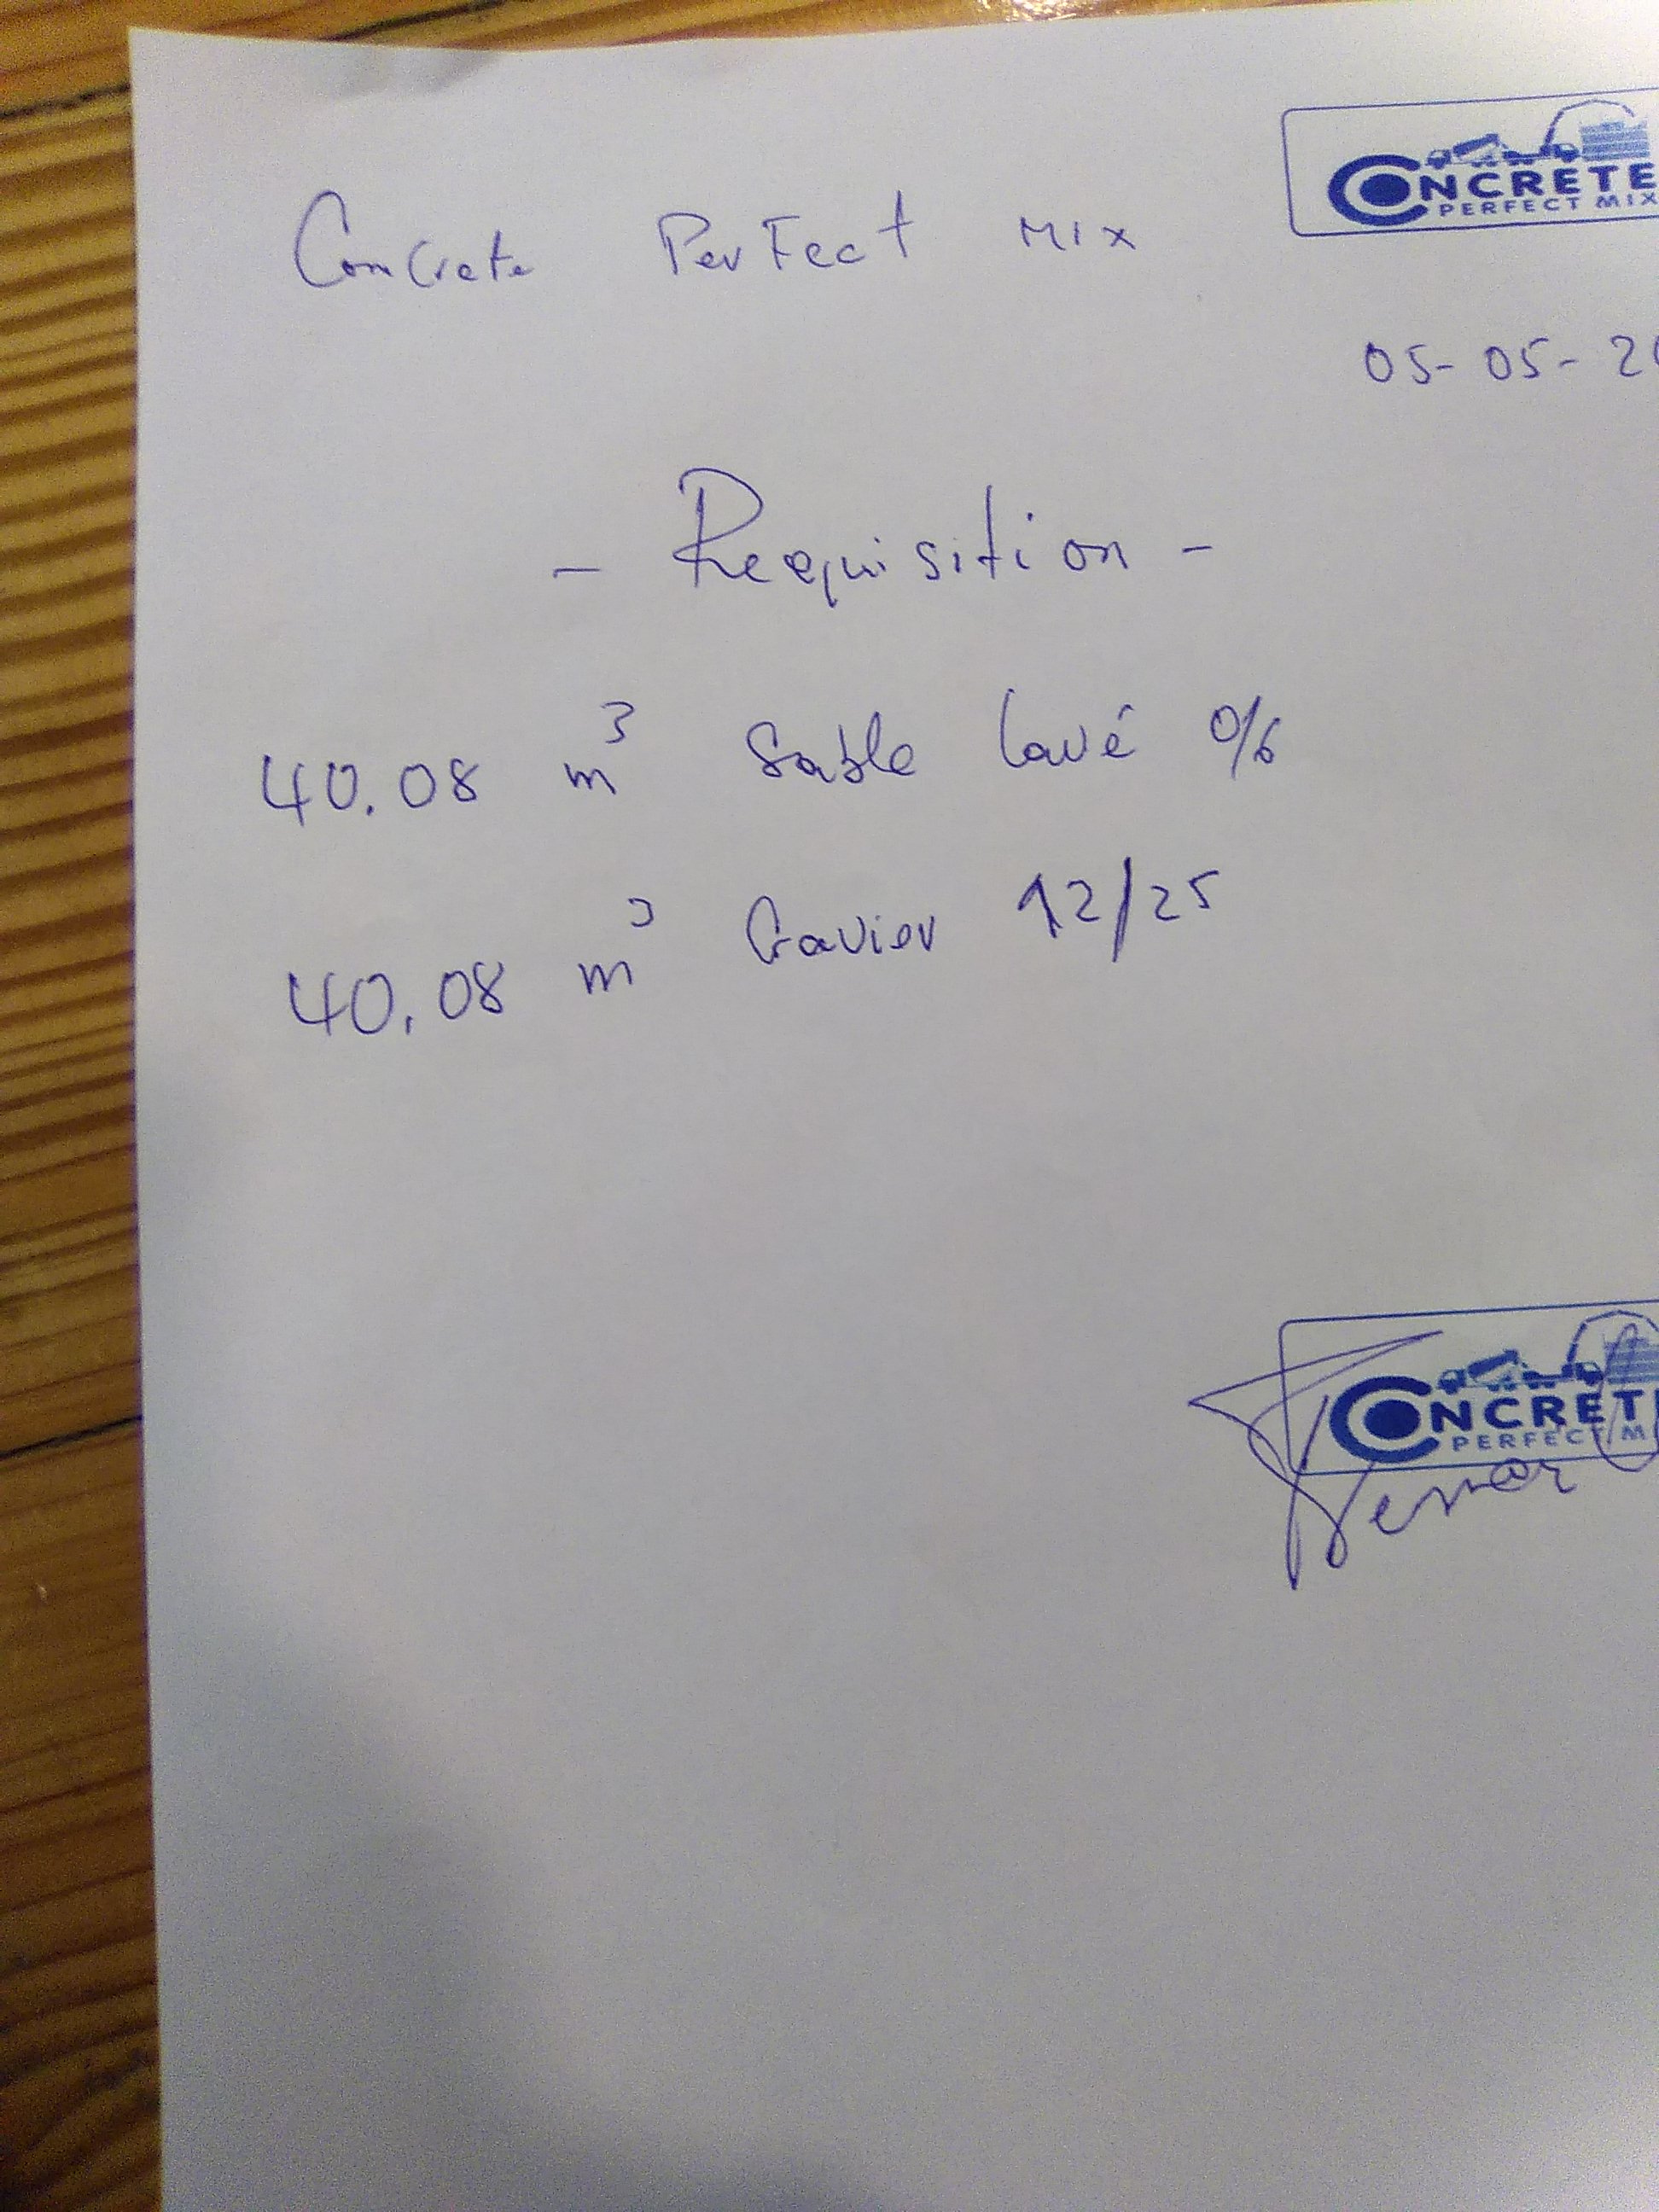 CONCRETE
PERFECT MIX
Concrete Perfect Mix
05-05-20
- Requisition -
40.08 m³ Sable lavé 0/6
40.08 m³ Gravier 12/25
CONCRETE
PERFECT M